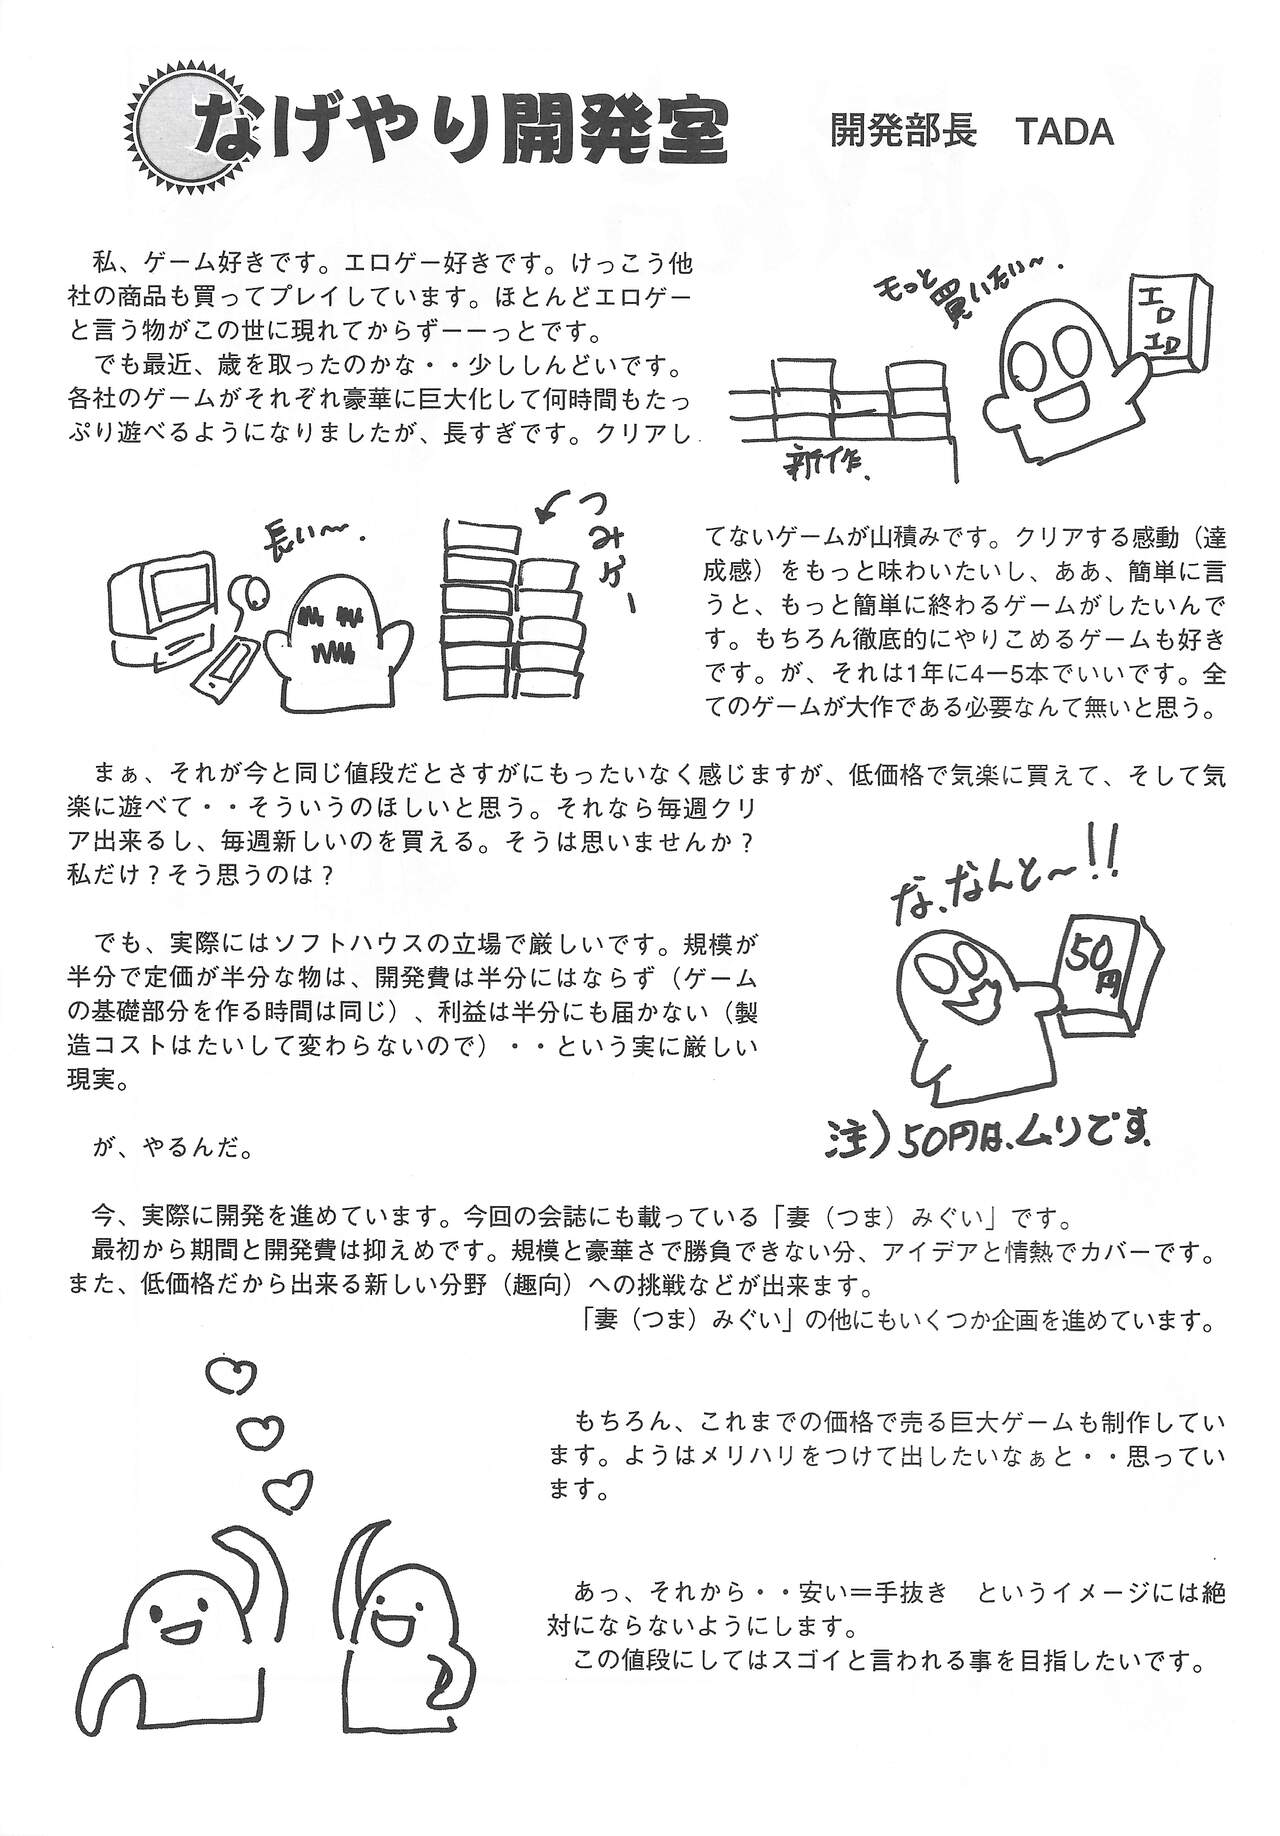 なげやり開発室
開発部長　TADA
私、ゲーム好きです。エロゲー好きです。けっこう他
社の商品も買ってプレイしています。ほとんどエロゲー
と言う物がこの世に現れてからずーーっとです。
でも最近、歳を取ったのかな・・少ししんどいです。
各社のゲームがそれぞれ豪華に巨大化して何時間もたっ
ぷり遊べるようになりましたが、長すぎです。クリアし
もっと
買いたい〜.
エロ
エロ
新作.
長い〜.
つみゲー
てないゲームが山積みです。クリアする感動（達
成感）をもっと味わいたいし、ああ、簡単に言
うと、もっと簡単に終わるゲームがしたいんで
す。もちろん徹底的にやりこめるゲームも好き
です。が、それは1年に4ー5本でいいです。全
てのゲームが大作である必要なんて無いと思う。
まぁ、それが今と同じ値段だとさすがにもったいなく感じますが、低価格で気楽に買えて、そして気
楽に遊べて・・そういうのほしいと思う。それなら毎週クリ
ア出来るし、毎週新しいのを買える。そうは思いませんか？
私だけ？そう思うのは？
でも、実際にはソフトハウスの立場で厳しいです。規模が
半分で定価が半分な物は、開発費は半分にはならず（ゲーム
の基礎部分を作る時間は同じ）、利益は半分にも届かない（製
造コストはたいして変わらないので）・・という実に厳しい
現実。
な、なんと〜!!
50
円
注）50円は、ムリです.
が、やるんだ。
今、実際に開発を進めています。今回の会誌にも載っている「妻（つま）みぐい」です。
最初から期間と開発費は抑えめです。規模と豪華さで勝負できない分、アイデアと情熱でカバーです。
また、低価格だから出来る新しい分野（趣向）への挑戦などが出来ます。
「妻（つま）みぐい」の他にもいくつか企画を進めています。
もちろん、これまでの価格で売る巨大ゲームも制作してい
ます。ようはメリハリをつけて出したいなぁと・・思ってい
ます。
あっ、それから・・安い＝手抜き　というイメージには絶
対にならないようにします。
この値段にしてはスゴイと言われる事を目指したいです。